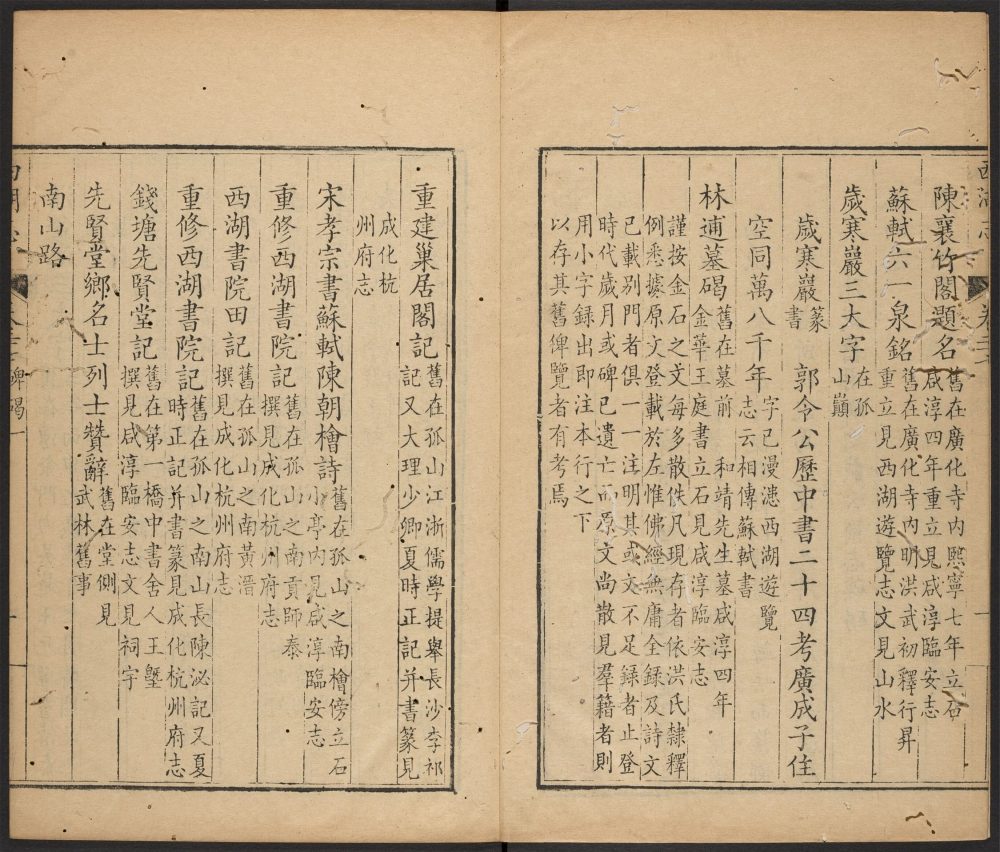 西湖志 卷
陳襄竹閣題名
舊在廣化寺内熙寧七年立石
咸淳四年重立見咸淳臨安志
蘇軾六一泉銘
舊在廣化寺内明洪武初釋行昇
重立見西湖遊覽志文見山水
歲寒巖三大字
在孤
山巔
歲寒巖
篆
書
郭令公歷中書二十四考廣成子住
空同萬八千年
字已漫漶西湖遊覽
志云相傳蘇軾書
林逋墓碣
舊在墓前 和靖先生墓咸淳四年
金華王庭書立石見咸淳臨安志
謹按金石之文每多散佚凡現存者依洪氏隸釋
例悉據原文登載於左惟佛經無庸全録及詩文
已載别門者俱一一注明其或文不足録者止登
時代歲月或碑已遺亡而原文尚散見羣籍者則
用小字録出即注本行之下
以存其舊俾覽者有考焉
重建巢居閣記
舊在孤山江浙儒學提舉長沙李祁
記又大理少卿夏時正記并書篆見
成化杭
州府志
宋孝宗書蘇軾陳朝檜詩
舊在孤山之南檜傍立石
小亭内見咸淳臨安志
重修西湖書院記
舊在孤山之南貢師泰
撰見成化杭州府志
西湖書院田記
舊在孤山之南黄溍
撰見成化杭州府志
重修西湖書院記
舊在孤山之南山長陳泌記又夏
時正記并書篆見成化杭州府志
錢塘先賢堂記
舊在第一橋中書舍人王塈
撰見咸淳臨安志文見祠宇
先賢堂鄉名士列士贊辭
舊在堂側見
武林舊事
南山路
碑碣 一